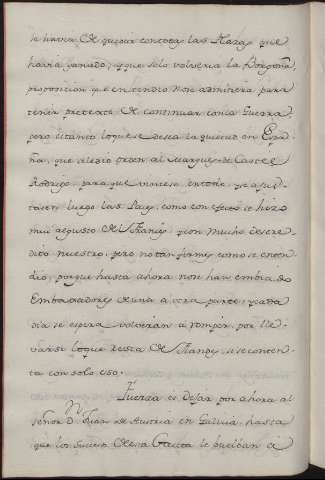 se havia de quedar con todas las Plazas que
havia ganado, y que solo volveria la Borgoña,
proposicion que entendio no admitiera para
tener pretexto de continuar con la Guerra,
pero es tanto lo que se desea la quietud en Espa-
ña, que se le dio orden al Marques de Castel
Rodrigo para que viniese en todo, y se ajus-
tasen luego las Paces, como con efecto se hizo
mui a gusto de Francia, y con mucho descre-
dito nuestro, pero no tan firmes como se enten-
dio, porque hasta ahora non han embiado
Embaxadores de una a otra parte, y cada
dia se espera volveran a romper, por lle-
varse lo que resta de Flandes si se conten-
ta con solo eso.
Fuerza es dejar por ahora al
señor Dn. Juan de Austria en Galicia, hasta
que los sucesos de esta Gaceta le vuelvan a